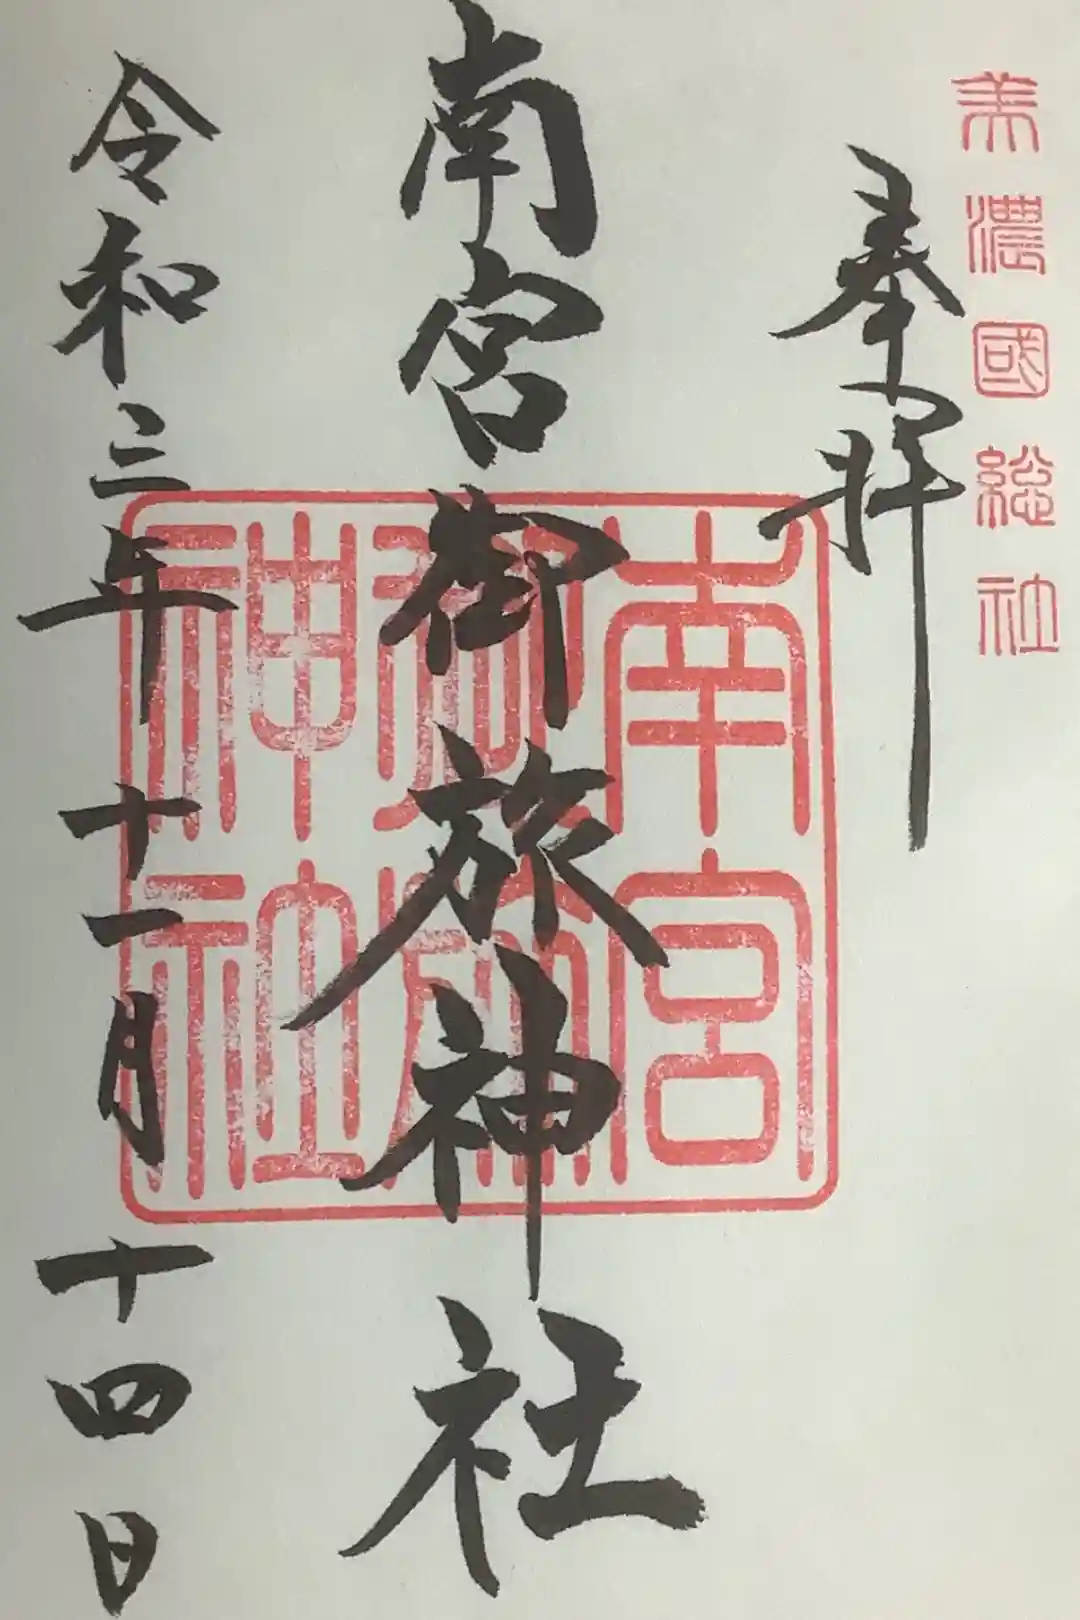 美濃國総社
奉拝
南宮御旅神社
南宮
御旅
神社
令和三年十一月十四日